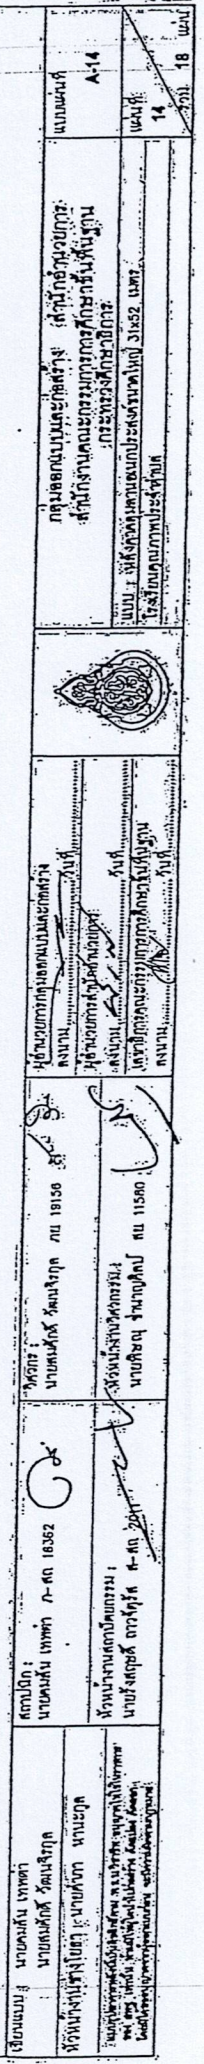 เขียนแบบ : นายคมสัน เทพคำ
นายสมศักดิ์ วัฒนจิรกุล
หัวหน้างานช่างโยธา :
สถาปนิก :
นายคมสัน เทพคำ ภ-สถ 18362
หัวหน้างานสถาปัตยกรรม :
วิศวกร :
นายสมศักดิ์ วัฒนจิรกุล ภย 19156
หัวหน้างานวิศวกรรม :
สย 11580
ผู้อำนวยการกลุ่มออกแบบและก่อสร้าง
ลงนาม วันที่
ผู้อำนวยการสำนักอำนวยการ
ลงนาม วันที่
เลขาธิการคณะกรรมการการศึกษาขั้นพื้นฐาน
ลงนาม วันที่
กลุ่มออกแบบและก่อสร้าง สำนักอำนวยการ
สำนักงานคณะกรรมการการศึกษาขั้นพื้นฐาน
กระทรวงศึกษาธิการ
แบบ : หลังคาคลุมลานอเนกประสงค์ขนาดใหญ่ 31x52 เมตร
โรงเรียนคุณภาพประจำตำบล
แบบแผ่นที่
A-14
แผ่นที่
14
รวม 18 แผ่น